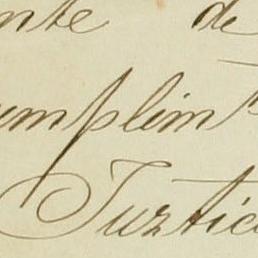 nte de
umplimto
Juztic